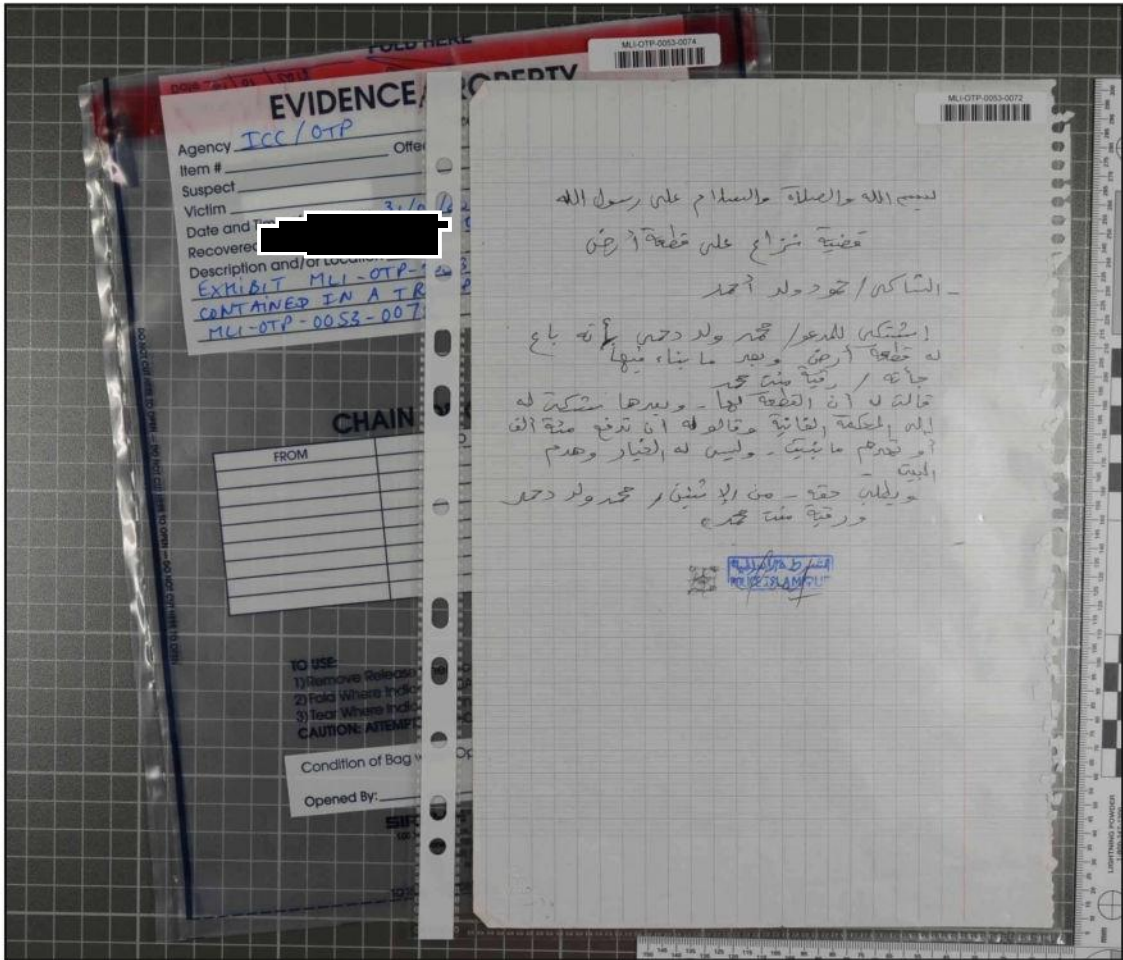 FOLD HERE
MLI-OTP-0053-0074
EVIDENCE PROPERTY
Agency ICC/OTP
Item #
Suspect
Victim
Date and
Recovered
Description and/or Location
EXHIBIT MLI-OTP-
CONTAINED IN A
MLI-OTP-0053-007
CHAIN
FROM
TO USE:
1) Remove Release
2) Fold Where
3) Tear Where
CAUTION:
Condition of Bag
Opened By:
MLI-OTP-0053-0072
بسم الله والصلاة والسلام على رسول الله
قضية نزاع على قطعة أرض
- الشاكي / حمود ولد أحمد
إشتكى للمدعو / محمد ولد دحمي بأنه باع
له قطعة أرض وبعد ما بناء فيها
جأته / رقية منت محمد
قالت له أن القطعة لها - وبعدها شتكت له
إلى المحكمة القانية وقالو له ان تدفع مئة الف
أو تهدم ما بنيت - وليس له الخيار وهدم
البيت
ويطلب حقه - من الإثنين / محمد ولد دحمد
ورقية منت محمد
الشرطة الإسلامية
POLICE ISLAMIQUE
LIGHTNING POWDER
mm